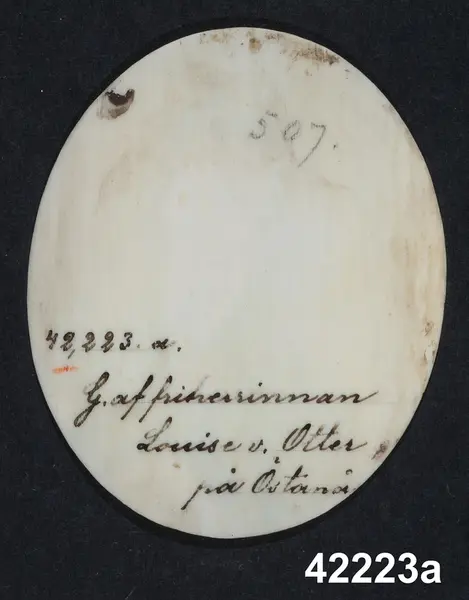 507.
42,223. a.
G. af friherrinnan
Louise v. Otter
på Östanå
42223a